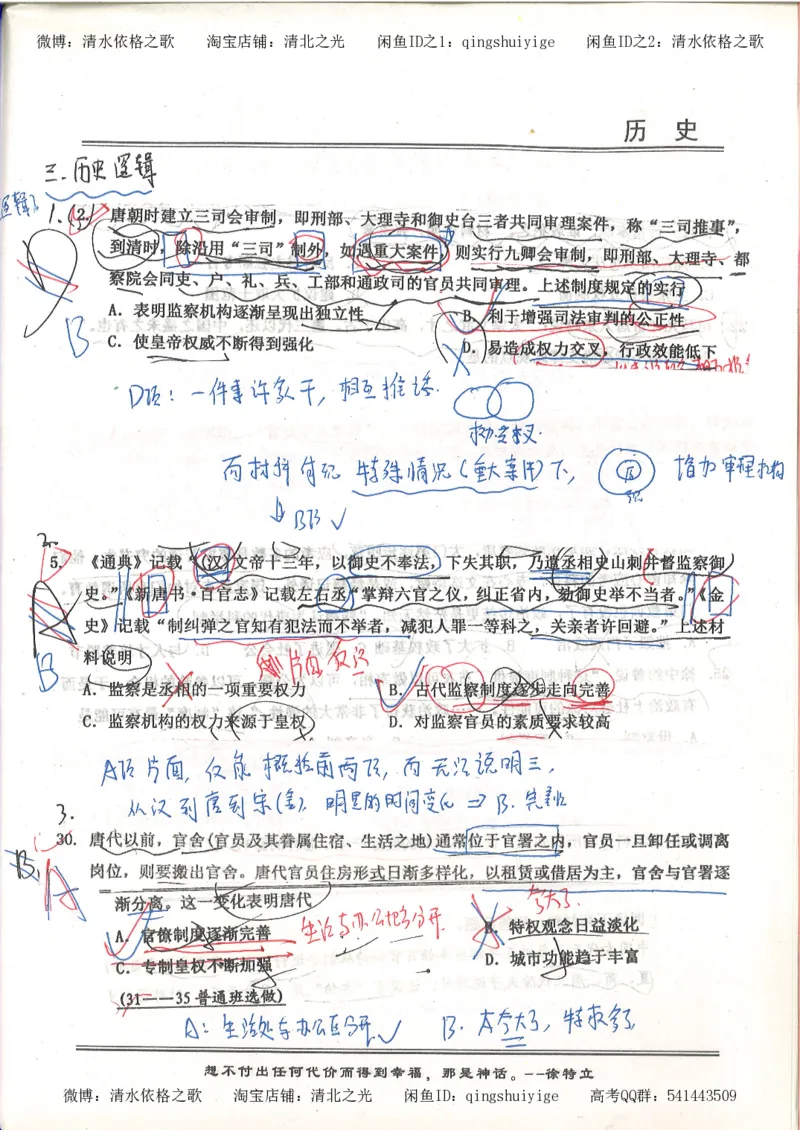 微博：清水依格之歌 淘宝店铺：清北之光 闲鱼ID之1：qingshuiyige 闲鱼ID之2：清水依格之歌
历 史
三.历史逻辑
1.（2.）唐朝时建立三司会审制，即刑部、大理寺和御史台三者共同审理案件，称“三司推事”，
到清时，除沿用“三司”制外，如遇重大案件，则实行九卿会审制，即刑部、大理寺、都
察院会同吏、户、礼、兵、工部和通政司的官员共同审理。上述制度规定的实行
A．表明监察机构逐渐呈现出独立性 B．利于增强司法审判的公正性
C．使皇帝权威不断得到强化 D．易造成权力交叉，行政效能低下
B
D项：一件事许多人干，相互推诿.
而材料有说 特殊情况（重大案件）下， 增加审理机构
↓B项 ✓
2.
5. 《通典》记载“（汉）文帝十三年，以御史不奉法，下失其职，乃遣丞相史出刺并督监察御
史。”《新唐书·百官志》记载左右丞“掌辩六官之仪，纠正省内，劾御史举不当者。”《金
史》记载“制纠弹之官知有犯法而不举者，减犯人罪一等科之，关亲者许回避。”上述材
料说明
B
A．监察是丞相的一项重要权力 B．古代监察制度逐步走向完善
C．监察机构的权力来源于皇权 D．对监察官员的素质要求较高
A项 片面，仅能概括前两项，而无法说明三，
从汉到唐到宋（金），明显的时间变化 ⇒ B. 完善
3.
30. 唐代以前，官舍(官员及其眷属住宿、生活之地)通常位于官署之内，官员一旦卸任或调离
岗位，则要搬出官舍。唐代官员住房形式日渐多样化，以租赁或借居为主，官舍与官署逐
渐分离。这一变化表明唐代
B. A
生活与办公地分开
夸大了
A．官僚制度逐渐完善 B．特权观念日益淡化
C．专制皇权不断加强 D．城市功能趋于丰富
(31——35 普通班选做)
A：生活处与办公区分开✓ B. 太夸大了，
想不付出任何代价而得到幸福，那是神话。--徐特立
微博：清水依格之歌 淘宝店铺：清北之光 闲鱼ID：qingshuiyige 高考QQ群：541443509